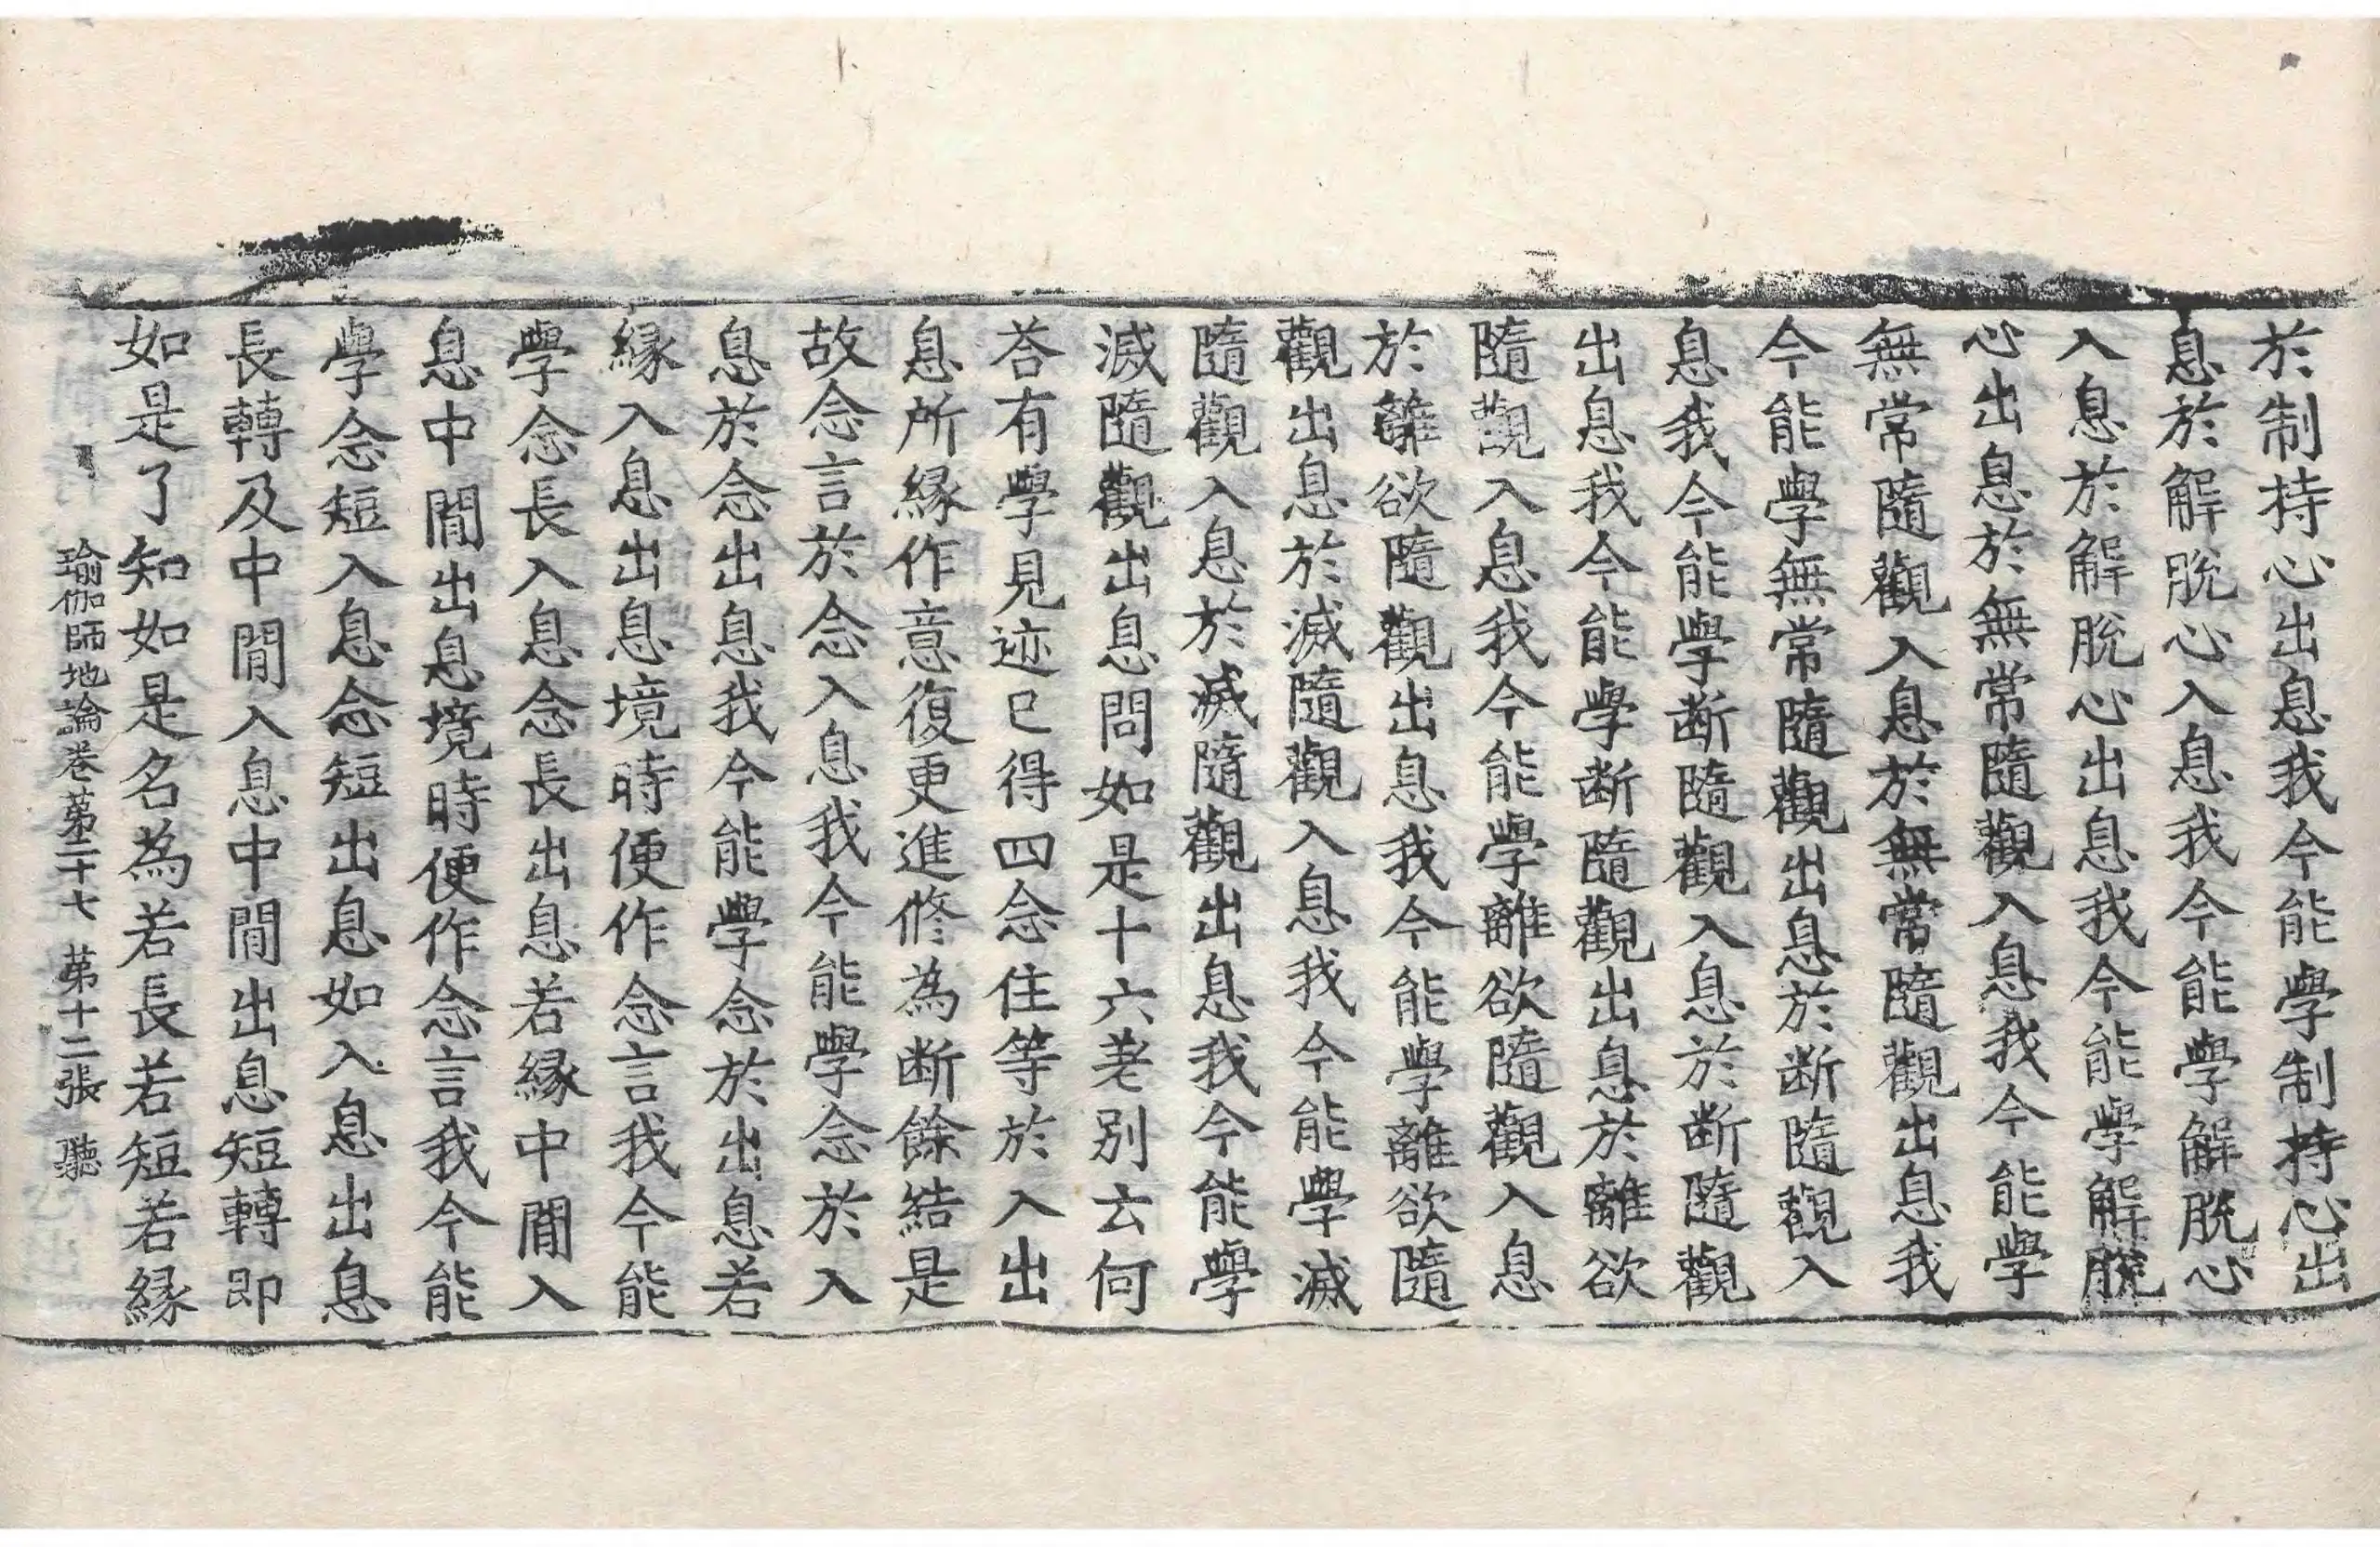 於制持心出息我今能學制持心出
息於解脫心入息我今能學解脫心
入息於解脫心出息我今能學解脫
心出息於無常隨觀入息我今能學
無常隨觀入息於無常隨觀出息我
今能學無常隨觀出息於断隨觀入
息我今能學断隨觀入息於断隨觀
出息我今能學断隨觀出息於離欲
隨觀入息我今能學離欲隨觀入息
於離欲隨觀出息我今能學離欲隨
觀出息於滅隨觀入息我今能學滅
隨觀入息於滅隨觀出息我今能學
滅隨觀出息問如是十六差別云何
荅有學見迹已得四念住等於入出
息所緣作意復更進修為断餘結是
故念言於念入息我今能學念於入
息於念出息我今能學念於出息若
緣入息出息境時便作念言我今能
學念長入息念長出息若緣中閒入
息中閒出息境時便作念言我今能
學念短入息念短出息如入息出息
長轉及中閒入息中閒出息短轉即
如是了知如是名為若長若短若緣
瑜伽師地論卷第二十七　第十二張　聽